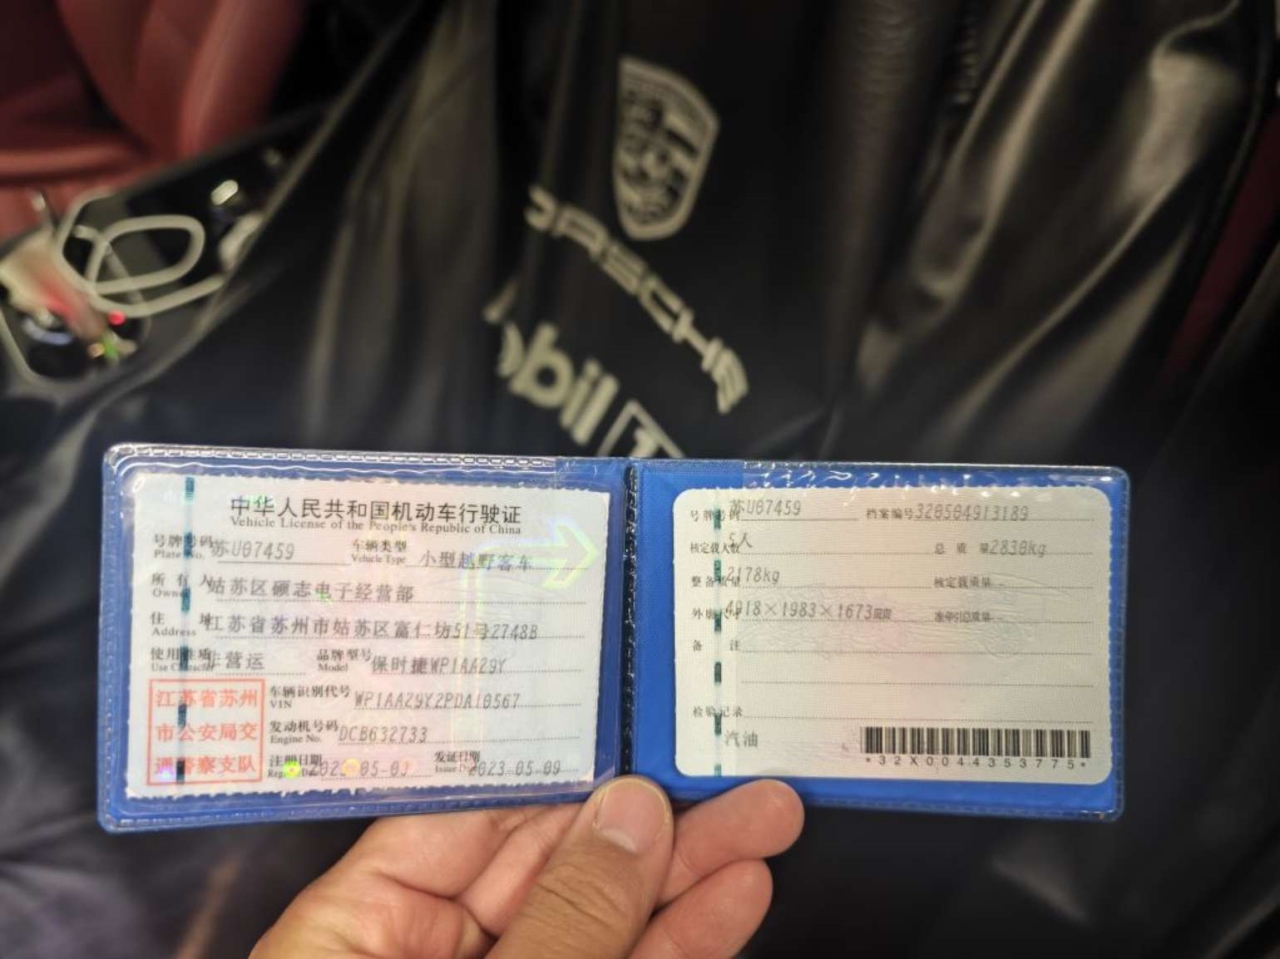 PORSCHE
Mobil 1
中华人民共和国机动车行驶证
Vehicle License of the People's Republic of China
号牌号码 苏U07459 车辆类型 小型越野客车
Plate No. Vehicle Type
所有人 姑苏区硕志电子经营部
Owner
住址 江苏省苏州市姑苏区富仁坊51号2748B
Address
使用性质 非营运 品牌型号 保时捷WP1AA29Y
Use Character Model
江苏省苏州
市公安局交
通警察支队
车辆识别代号 WP1AA29Y2PDA10567
VIN
发动机号码 DCB632733
Engine No.
注册日期 发证日期 2023.05.09
Issue Date
号牌号码 苏U07459 档案编号 320504913189
核定载人数 5人 总质量 2830kg
整备质量 2178kg 核定载质量 --
外廓尺寸 4918×1983×1673mm 准牵引总质量 --
备注
检验记录
汽油
*32X0044353775*